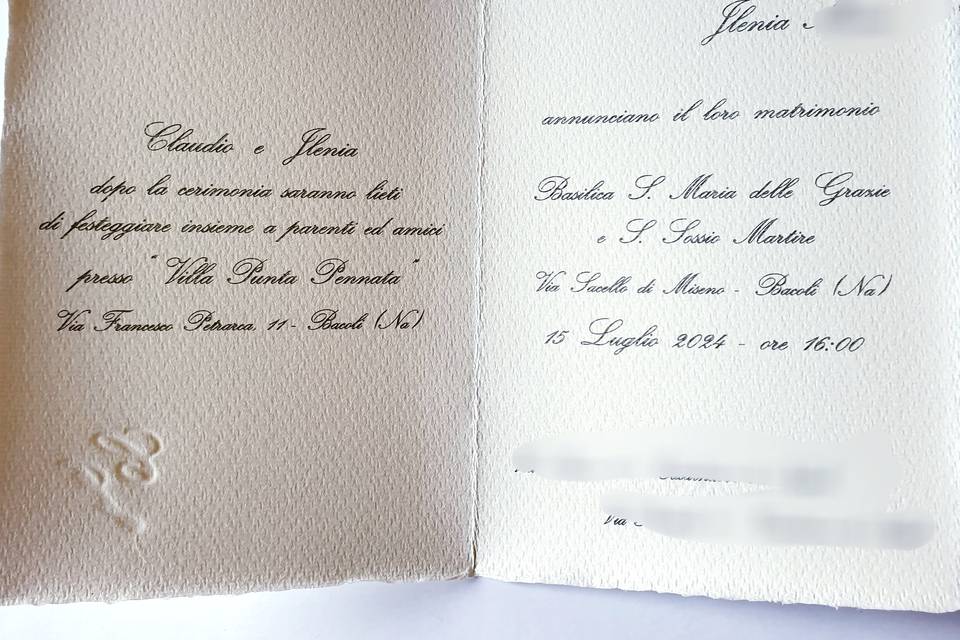 Claudio e Ilenia
dopo la cerimonia saranno lieti
di festeggiare insieme a parenti ed amici
presso "Villa Punta Pennata"
Via Francesco Petrarca, 11 - Bacoli (Na)
Ilenia
annunciano il loro matrimonio
Basilica S. Maria delle Grazie
e S. Sossio Martire
Via Sacello di Miseno - Bacoli (Na)
15 Luglio 2024 - ore 16:00
Via